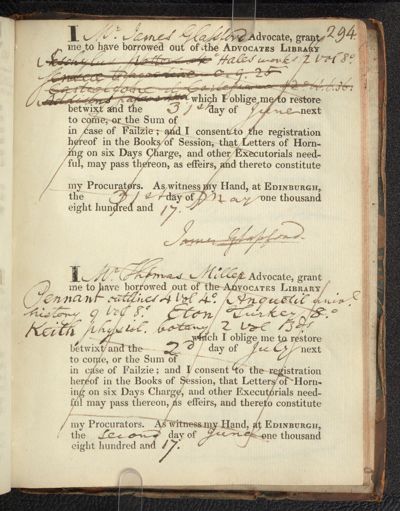 294
I Mr. James Glassford Advocate, grant
me to have borrowed out of the ADVOCATES LIBRARY
Hales works 2 vol 8º
org. 25
which I oblige me to restore
betwixt and the 31st day of June next
to come, or the Sum of
in case of Failzie; and I consent to the registration
hereof in the Books of Session, that Letters of Horn-
ing on six Days Charge, and other Executorials need-
ful, may pass thereon, as effeirs, and thereto constitute
my Procurators. As witness my Hand, at EDINBURGH,
the 31st day of May one thousand
eight hundred and 17.
James Glassford.
I Mr Thomas Miller Advocate, grant
me to have borrowed out of the ADVOCATES LIBRARY
Pennant outlines 4 vol 4º. Anquetil univ.
history 9 vol 8º. Eton Turkey 8º
Keith physiol. botany 2 vol 8º
which I oblige me to restore
betwixt and the 2d day of July next
to come, or the Sum of
in case of Failzie; and I consent to the registration
hereof in the Books of Session, that Letters of Horn-
ing on six Days Charge, and other Executorials need-
ful may pass thereon, as effeirs, and thereto constitute
my Procurators. As witness my Hand, at EDINBURGH,
the second day of June one thousand
eight hundred and 17.